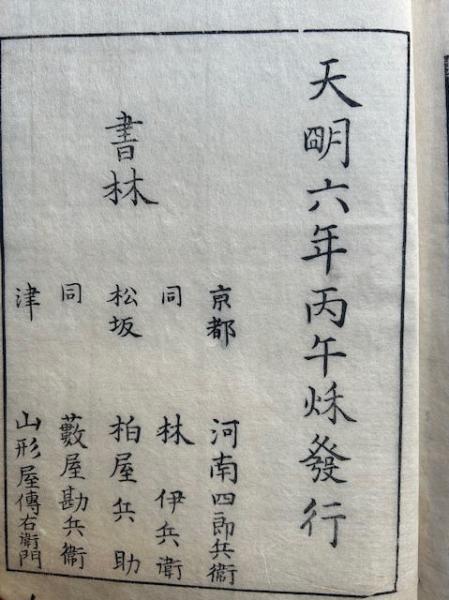 天明六年丙午秌發行
書林
京都 河南四郎兵衞
同 林伊兵衞
松坂 柏屋兵助
同 藪屋勘兵衞
津 山形屋傳右衞門